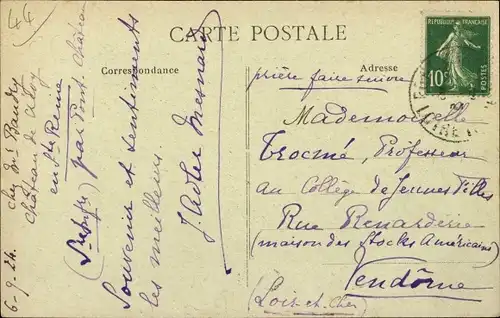 44
CARTE POSTALE
Correspondance
Adresse
RÉPUBLIQUE FRANÇAISE
10c
POSTES
LOIRE
prière faire suivre
Mademoiselle
Trocmé, Professeur
au Collège de Jeunes Filles
Rue Renarderie
(maison des Stocks Américains)
Vendôme
(Loir-et-Cher)
6-9-24.
chez Mme Baudry
Château de
en Ste Reine
par Pont-Château
Souvenir et sentiments
les meilleurs.
J. Adler Mesnard